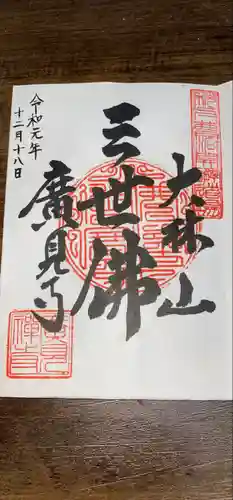 大林山
三世佛
廣見寺
令和元年
十二月十八日